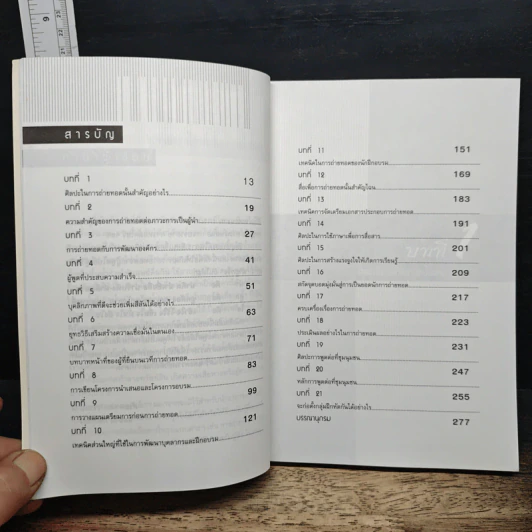 สารบัญ
บทที่ 1
ศิลปะในการถ่ายทอดนั้นสำคัญอย่างไร 13
บทที่ 2
ความสำคัญของการถ่ายทอดต่อภาวะการเป็นผู้นำ 19
บทที่ 3
การถ่ายทอดกับการพัฒนาองค์กร 27
บทที่ 4
ผู้พูดที่ประสบความสำเร็จ 41
บทที่ 5
บุคลิกภาพที่ดีจะช่วยเพิ่มสีสันได้อย่างไร 51
บทที่ 6
ยุทธวิธีเสริมสร้างความเชื่อมั่นในตนเอง 63
บทที่ 7
บทบาทหน้าที่ของผู้ที่ยืนบนเวทีการถ่ายทอด 71
บทที่ 8
การเขียนโครงการนำเสนอและโครงการอบรม 83
บทที่ 9
การวางแผนเตรียมการก่อนการถ่ายทอด 99
บทที่ 10
เทคนิคส่วนใหญ่ที่ใช้ในการพัฒนาบุคลากรและฝึกอบรม 121
บทที่ 11
เทคนิคในการถ่ายทอดของนักฝึกอบรม 151
บทที่ 12
สื่อเพื่อการถ่ายทอดนั้นสำคัญไฉน 169
บทที่ 13
เทคนิคการจัดเตรียมเอกสารประกอบการถ่ายทอด 183
บทที่ 14
ศิลปะในการใช้ภาษาเพื่อการสื่อสาร 191
บทที่ 15
ศิลปะในการสร้างแรงจูงใจให้เกิดการเรียนรู้ 201
บทที่ 16
สกัดจุดบอดมุ่งมั่นสู่การเป็นยอดนักการถ่ายทอด 209
บทที่ 17
ครบเครื่องเรื่องการถ่ายทอด 217
บทที่ 18
ประเมินผลอย่างไรในการถ่ายทอด 223
บทที่ 19
ศิลปะการพูดต่อที่ชุมนุมชน 231
บทที่ 20
หลักการพูดต่อที่ชุมนุมชน 247
บทที่ 21
จะก่อตั้งกลุ่มฝึกพูดกันได้อย่างไร 255
บรรณานุกรม 277